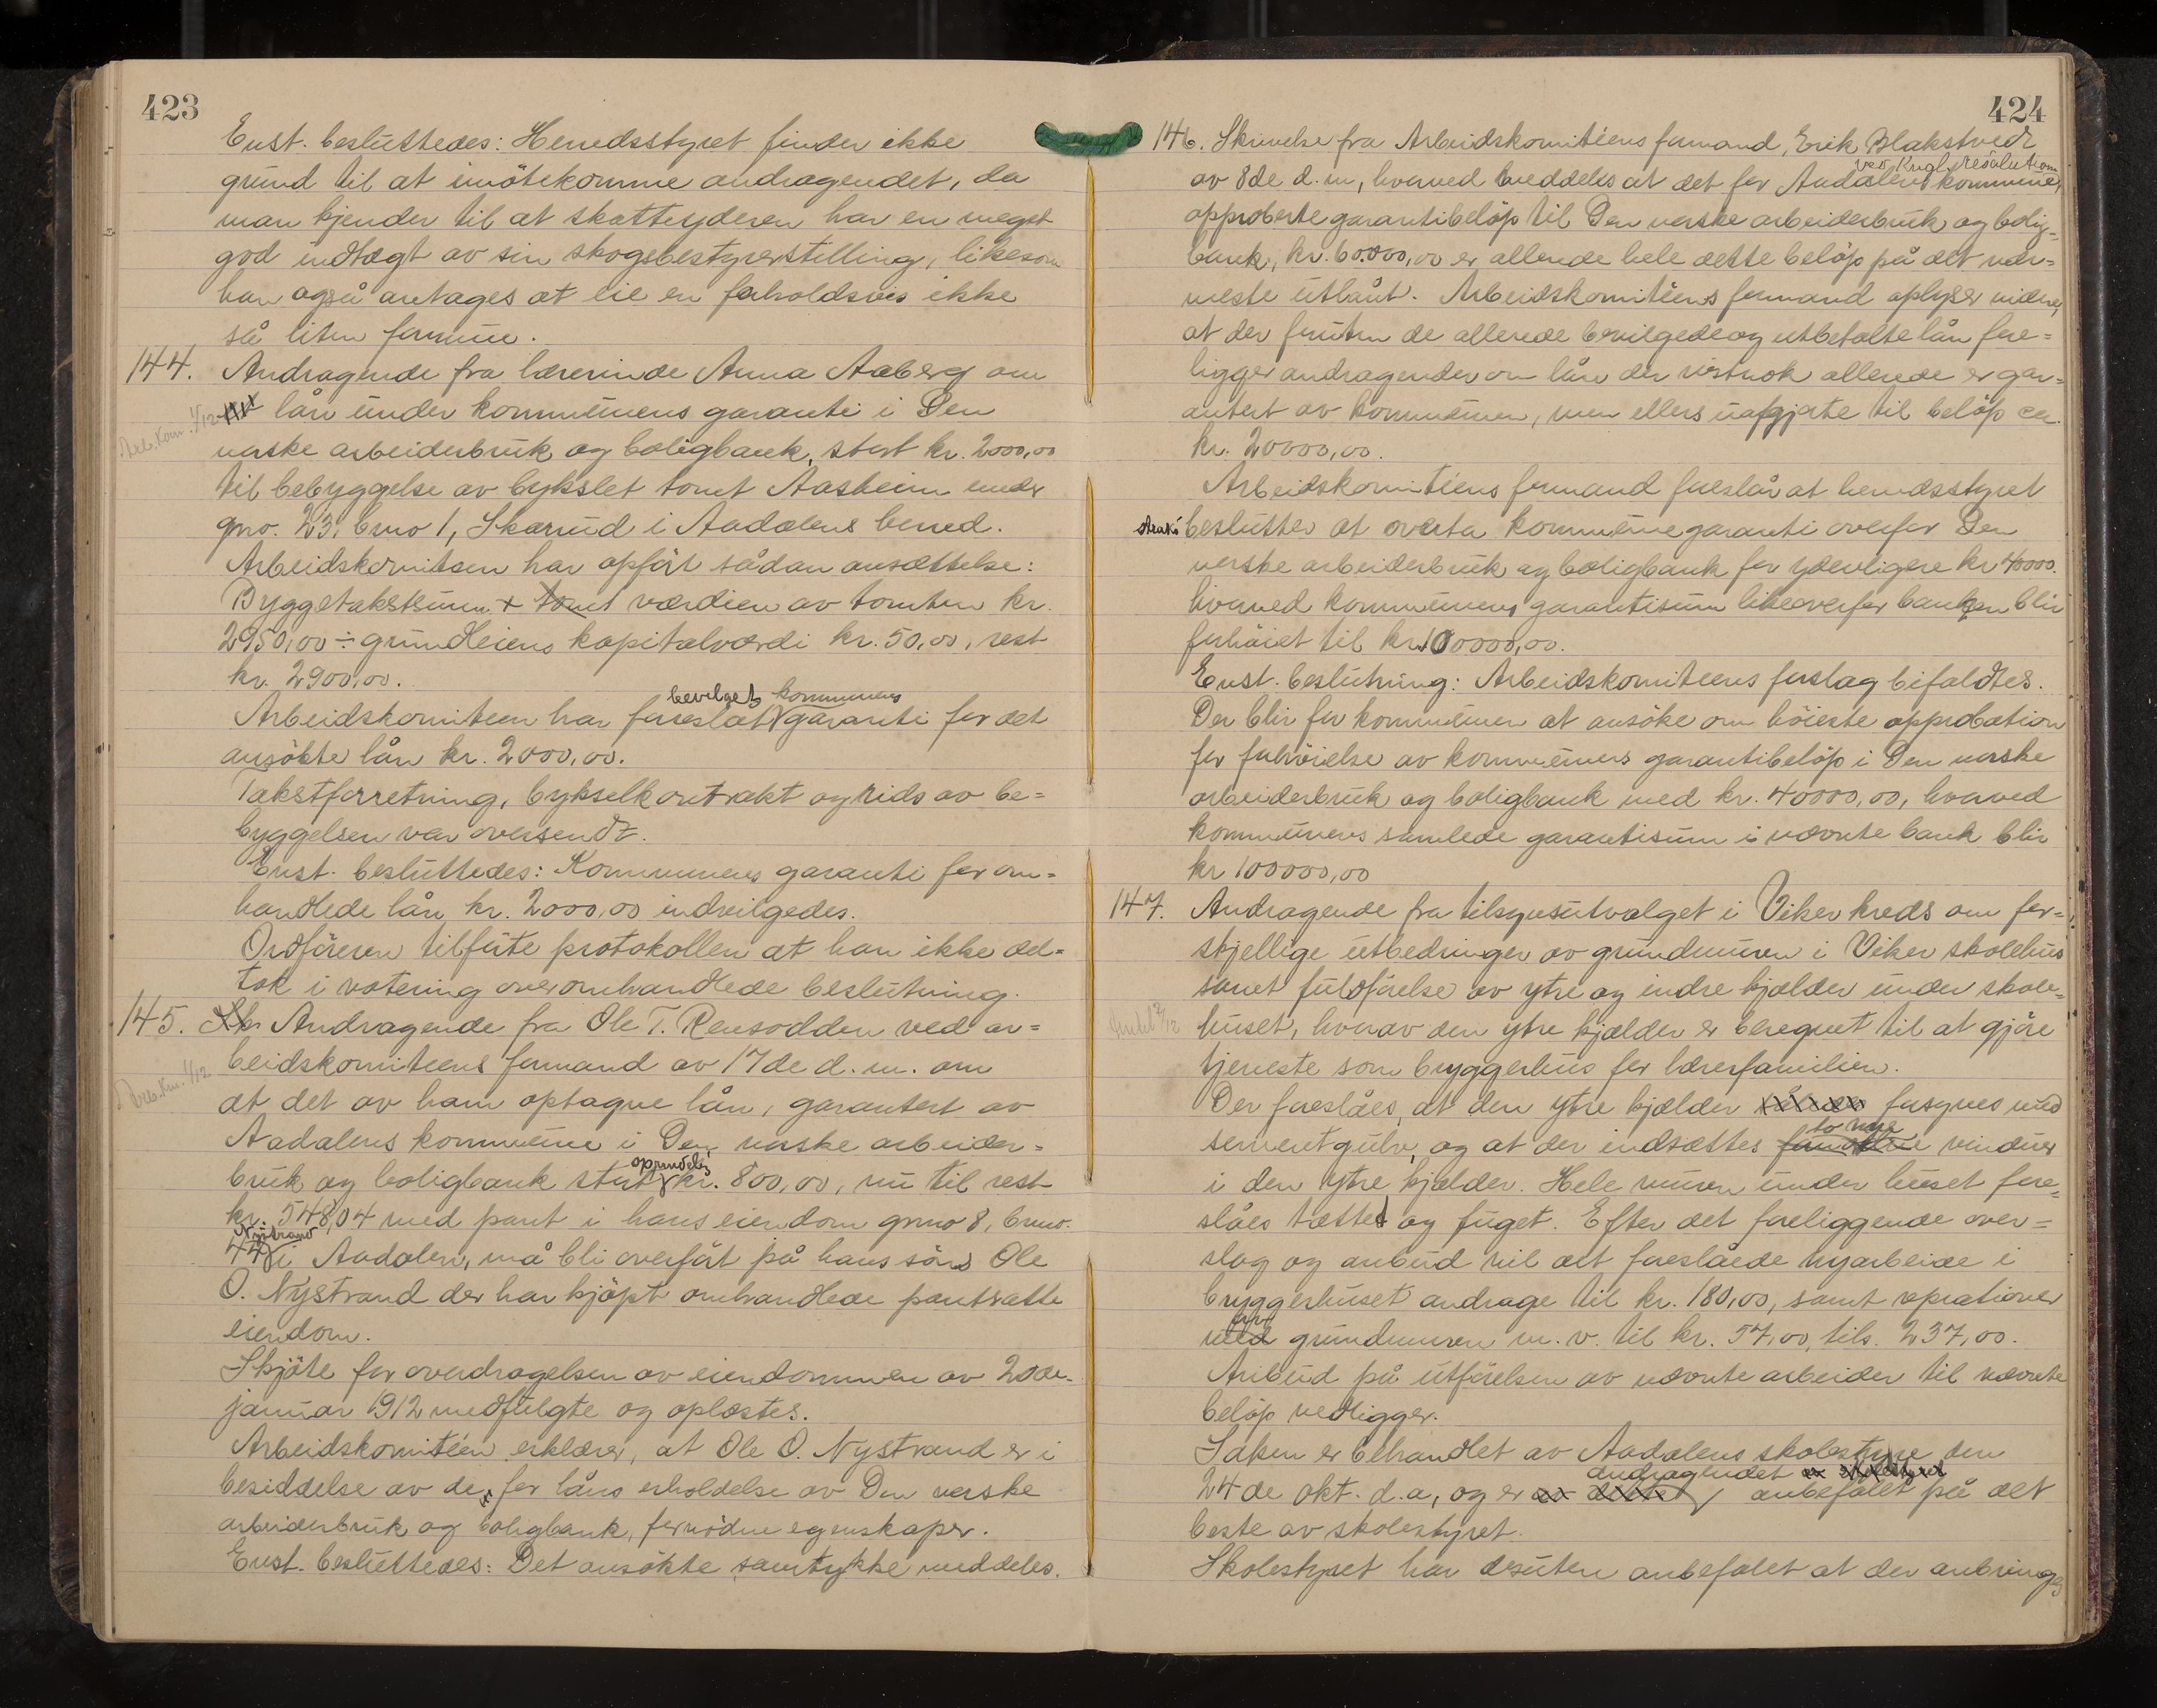 423
Enst. besluttedes: Herredsstyret finder ikke
grund til at imötekomme andragendet, da
man kjender til at skatteyderen har en meget
god indtægt av sin skogsbestyrerstilling, likesom
han også antages at eie en forholdsvis ikke
så liten formue.
144. Andragende fra lærerinde Anna Aaberg om
Arb.Kom. 1/12
lån under kommunens garanti i Den
norske arbeiderbruk og boligbank, stort kr. 2000,00
til bebyggelse av bykslet tomt Aasheim under
gno. 23, bno 1, Skarud i Aadalens herred.
Arbeidskomiteen har opfört sådan ansættelse:
Byggetakstsum + tomt værdien av tomten kr.
2950,00 ÷ grundleiens kapitalværdi kr. 50,00, rest
kr. 2900,00.
bevilget kommunens
Arbeidskomiteen har foreslåt garanti for det
ansökte lån kr. 2000,00.
Takstforretning, bykselkontrakt og rids av be=
byggelsen var oversendt.
Enst. besluttedes: Kommunens garanti for om=
handlede lån kr. 2000,00 indvilgedes.
Ordföreren tilförte protokollen at han ikke del=
tok i votering over omhandlede beslutning.
145. Skr Andragende fra Ole T. Rensodden ved ar=
beidskomiteens formand av 17de d. m. om
Arb.Km. 1/12
at det av ham optagne lån, garantert av
Aadalens kommune i Den norske arbeider=
oprindelig
bruk og boligbank stort kr. 800,00, nu til rest
kr. 548,04 med pant i hans eiendom gno 8, bno.
Nystrand
44 i Aadalen, må bli overfört på hans söns Ole
O. Nystrand der har kjöpt omhandlede pantsatte
eiendom.
Skjöte for overdragelsen av eiendommen av 20de
januar 1912 medfulgte og oplæstes.
Arbeidskomitéen erklærer, at Ole O. Nystrand er i
besiddelse av de, for låns erholdelse av Den norske
arbeiderbruk og boligbank, fornödne egenskaper.
Enst. besluttedes: Det ansökte samtykke meddeles.
424
146. Skrivelse fra Arbeidskomitéens formand, Erik Blakstvedt
ved Kngl. resolution
av 8de d. m, hvorved meddeles at det for Aadalens kommune
approberte garantibelöp til Den norske arbeiderbruk og bolig=
bank, kr. 60.000,00 er allerede hele dette belöp på det nær=
meste utlånt. Arbeidskomitéens formand oplyser videre,
at der foruten de allerede bevilgede og utbetalte lån fore=
ligger andragender om lån der vistnok allerede er gar=
antert av kommunen, men ellers uafgjorte til belöp ca.
kr. 20000,00.
Arbeidskomitéens formand foreslår at herredsstyret
straks beslutter at overta kommunegaranti overfor Den
norske arbeiderbruk og boligbank for yderligere kr 40000.
hvorved kommunens garantisum likeoverfor banken blir
forhöiet til kr 100000,00.
Enst. beslutning: Arbeidskomiteens forslag bifaldtes.
Der blir for kommunen at ansöke om höieste approbation
for forhöielse av kommunens garantibelöp i Den norske
arbeiderbruk og boligbank med kr. 40000,00, hvorved
kommunens samlede garantisum i nævnte bank blir
kr 100000,00
147. Andragende fra tilsynsutvalget i Viker kreds om for=
skjellige utbedringer av grundmuren i Viker skolehus
samt fuldförelse av ytre og indre kjælder under skole=
huset, hvorav den ytre kjælder er beregnet til at gjöre
tjeneste som bryggerhus for lærerfamilien.
Der foreslåes, at den ytre kjælder forsynes med
to nye
sementgulv, og at der indsættes vinduer
i den ytre kjælder. Hele muren under huset fore=
slåes tættet og fuget. Efter det foreliggende over=
slag og anbud vil det foreslåede nyarbeide i
bryggerhuset andrage til kr. 180,00, samt reprationer
av
med grundmuren m. v. til kr. 57,00, tils. 237,00.
Anbud på utförelsen av nævnte arbeider til nævnte
belöp vedligger.
Saken er behandlet av Aadalens skolestyre den
andragendet er skolestyret
24de okt. d.a, og er av dette anbefalet på det
beste av skolestyret.
Skolestyret har desuten anbefalet at der anbringes